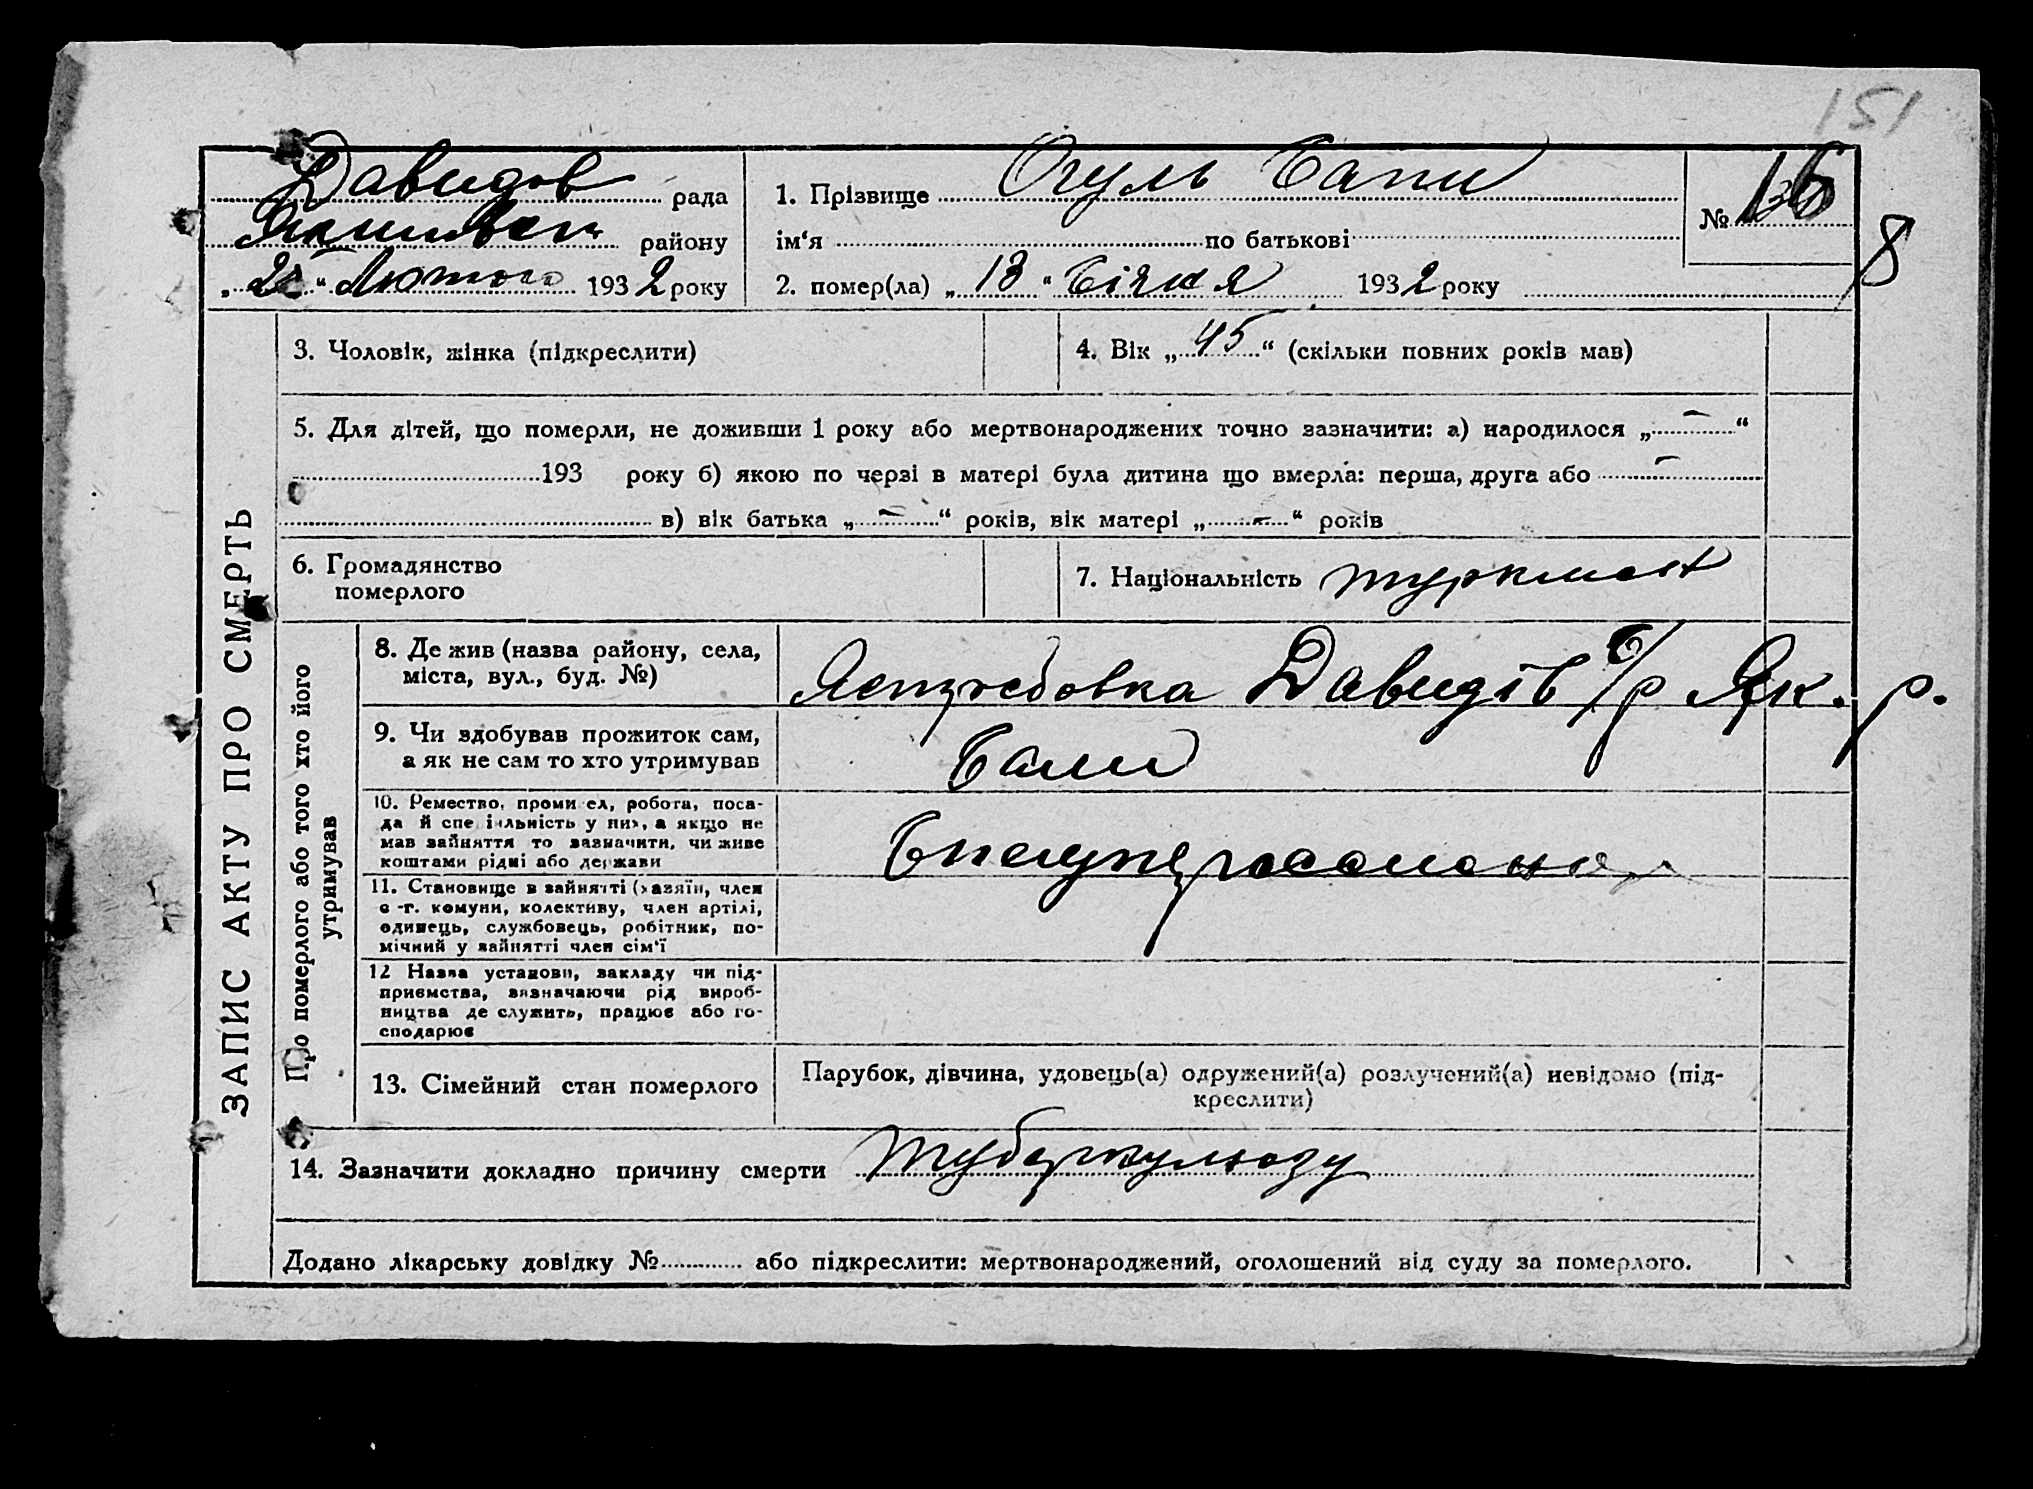 151
Давидов рада
Якимівськ району
„ 28 “ Лютого 1932 року
1. Прізвище Огуль Сапи
№ 16
8
ім‘я по батькові
2. помер(ла) „ 13 “ Січня 1932 року
ЗАПИС АКТУ ПРО СМЕРТЬ
3. Чоловік, жінка (підкреслити)
4. Вік „ 45 “ (скільки повних років мав)
5. Для дітей, що померли, не доживши 1 року або мертвонароджених точно зазначити: а) народилося „ — “
193 року б) якою по черзі в матері була дитина що вмерла: перша, друга або —
в) вік батька „ — “ років, вік матері „ — “ років
6. Громадянство
померлого
7. Національність туркмен
Про померлого або того хто його
утримував
8. Де жив (назва району, села,
міста, вул., буд. №)
Ястребовка Давидів с/р Як. р.
9. Чи здобував прожиток сам,
а як не сам то хто утримував
Сами
10. Ремество, промисел, робота, поса-
да й спеціяльність у них, а якщо не
мав зайняття то зазначити, чи живе
коштами рідні або держави
11. Становище в зайнятті (хазяїн, член
с.-г. комуни, колективу, член артілі,
одинець, службовець, робітник, по-
мічний у зайнятті член сім‘ї
12 Назва установи, закладу чи під-
приємства, зазначаючи рід вироб-
ництва де служить, працює або го-
сподарює
13. Сімейний стан померлого
Парубок, дівчина, удовець(а) одружений(а) розлучений(а) невідомо (під-
креслити)
14. Зазначити докладно причину смерти туберкульозу
Додано лікарську довідку № або підкреслити: мертвонароджений, оголошений від суду за померлого.